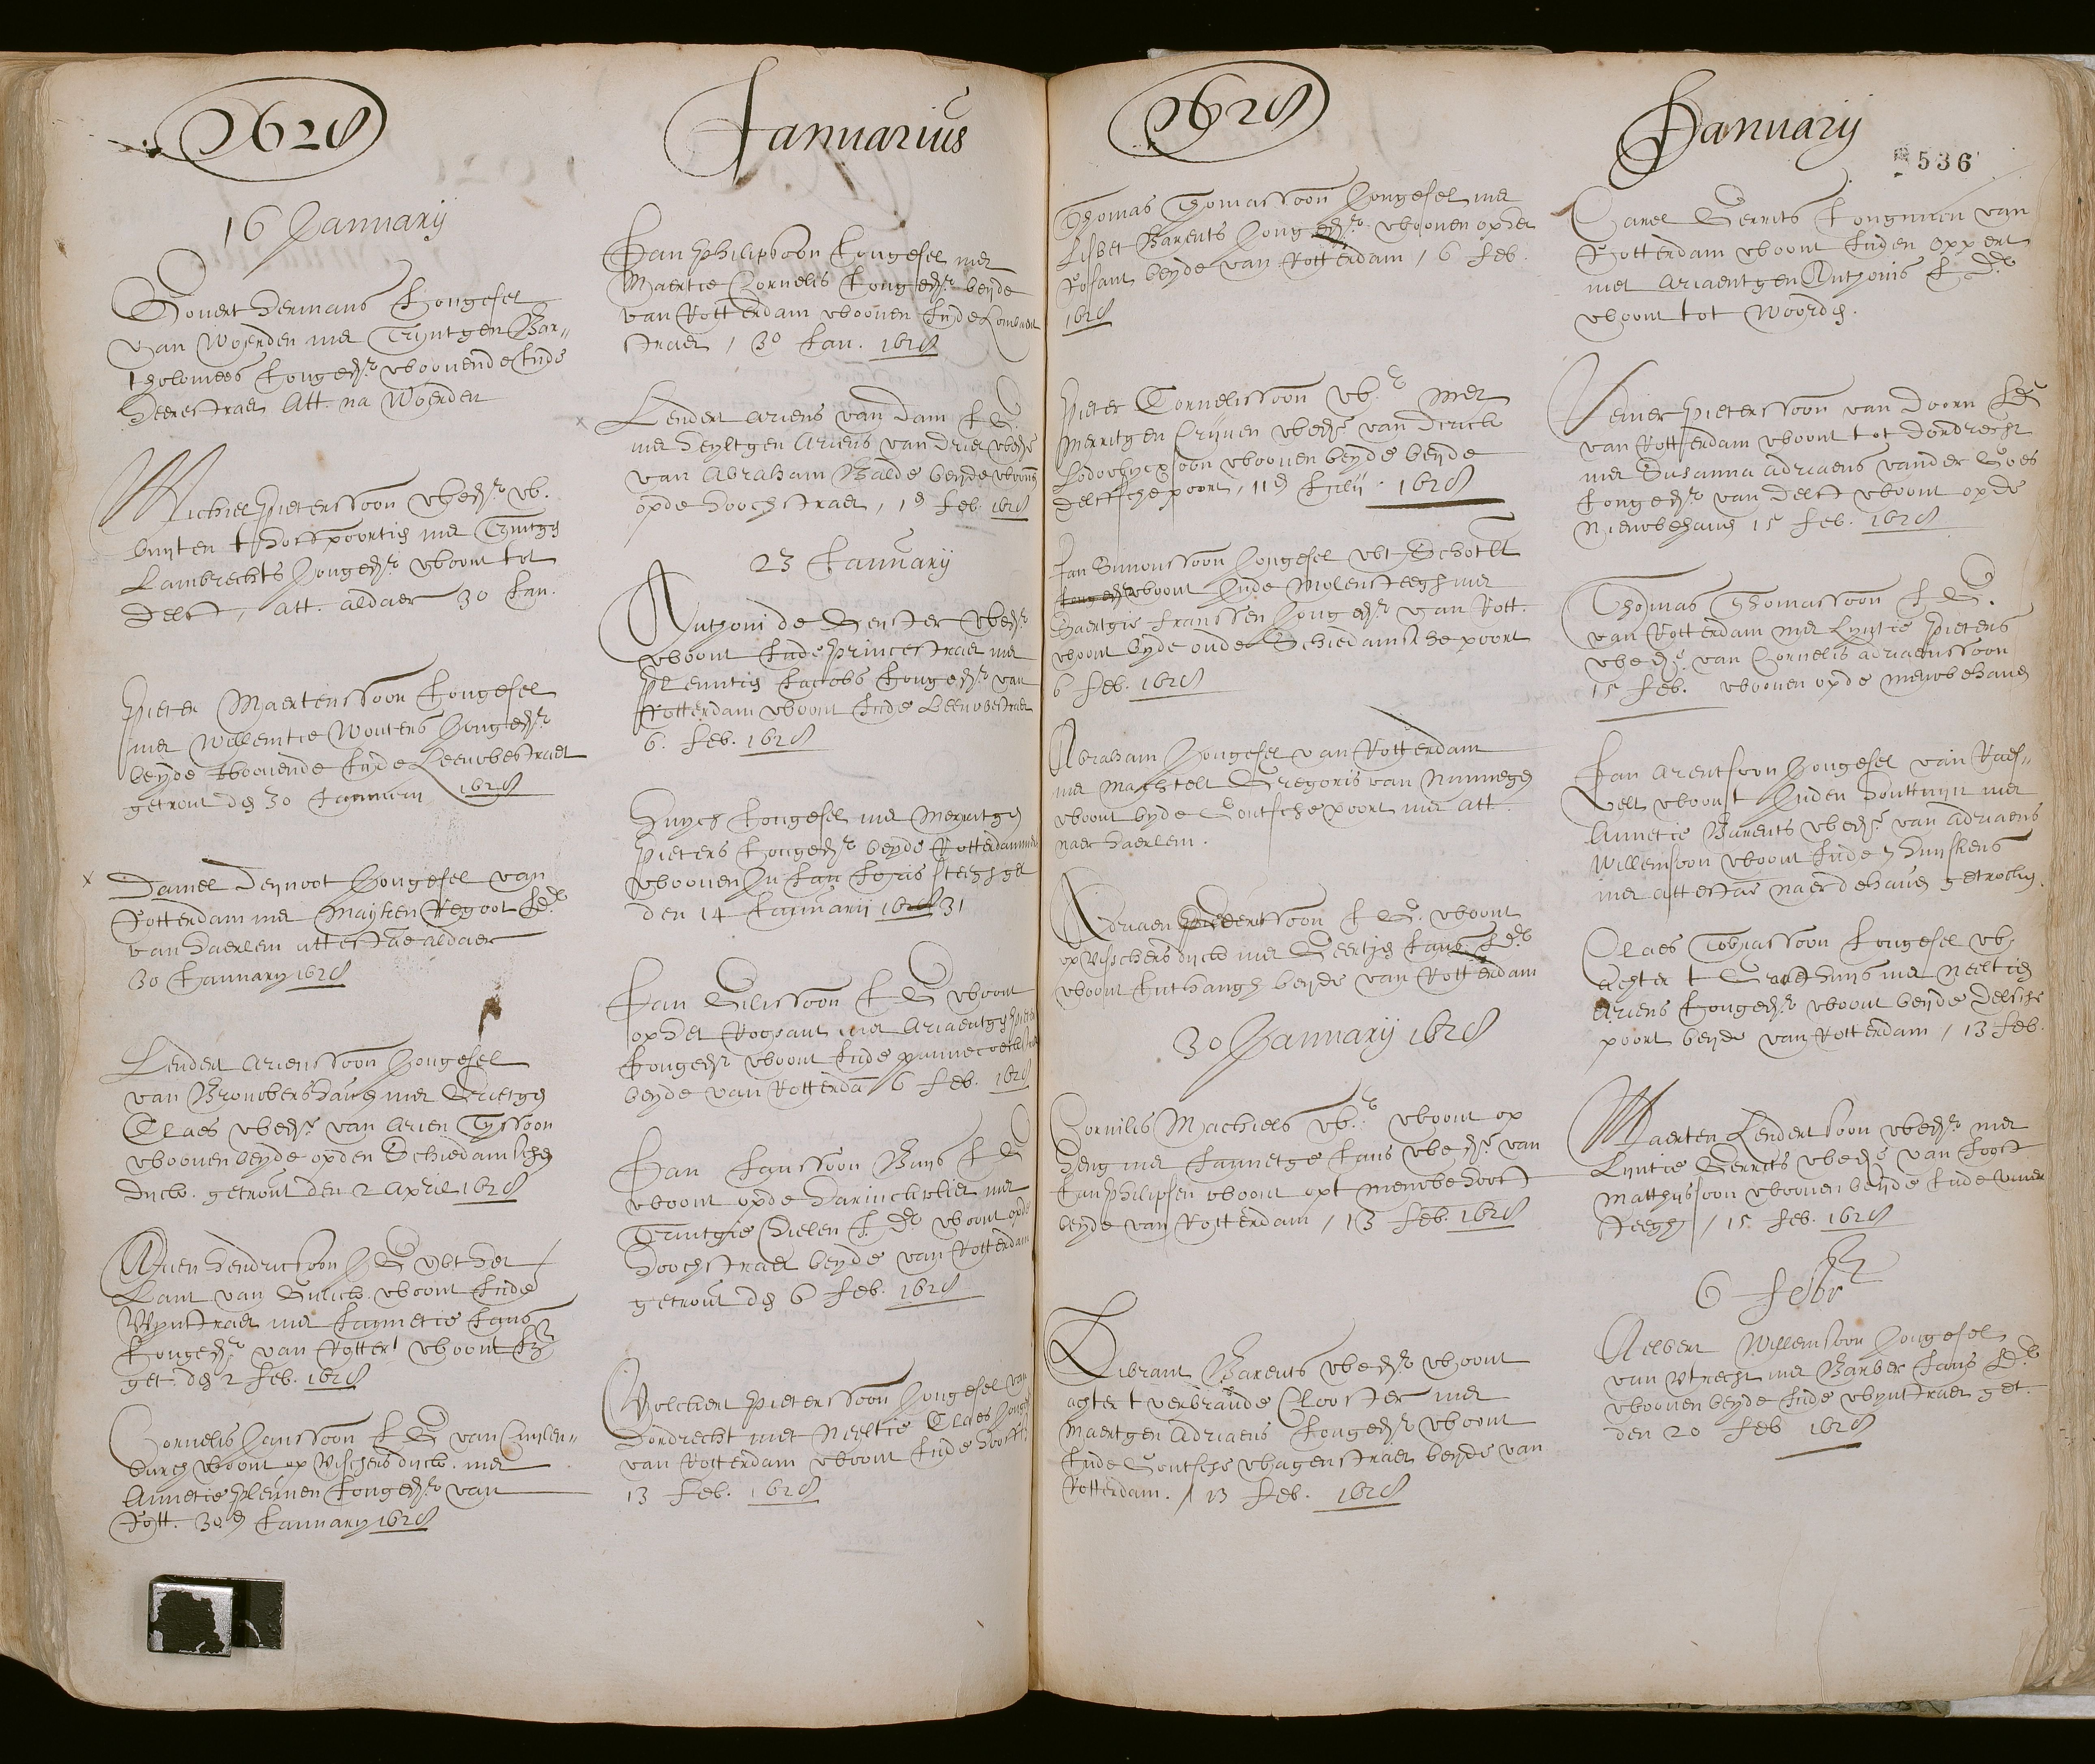 1628
Januarius
16 January
Govert Hermans Jongesel
van Woerden met Tryntgen Bar„
tholomees Jongedr woonende Inde
Heerestraet Att. na Woerden
Michiel Pieterssoon wedr w.
buyten t hofpoortie met Tryntgen
Lambrechts Jongedr woont tot
Delft, att. aldaer 30 Jan.
Pieter Maertenssoon Jongesel
met Willemtie Wouters Jongedr
beyde woonende Inde Leeuwestraet
getrout den 30 January 1628
x Daniel Deynoot Jongesel van
Rotterdam met Mayken Regoot J.Dr
van Haerlem attestatie aldaer
30 January 1628
Lendert Arienssoon Jongesel
van Brouwershaven met Grietgen
Claes wedr van Arien Tyssoon
woonen beyde opden Schiedamschen
dyck. getrout den 2 April 1628
Arien Hendricksoon J G wt het
Lant van Gulick woont Inde
Wynstraet met Jannetie Jans
Jongedr van Rotter woont
get. den 2 Feb. 1628
Cornelis Janssoon J G van Cuylen„
burch woont op Visschersdyck met
Annetie Pleunen Jongedr van
Rott. 30 January 1628
Jan Philipsoon Jongesel met
Maertie Cornelis Jongedr beyde
van Rotterdam woonen Inde Lombart
straet, 30 Jan. 1628
x Lendert Ariens van Dam J G.
met Heyltgen Ariens van Driel wedr
van Abraham Balde beyde woonen
opde Hoochstraet, 15 Feb. 1628
23 January
Anthoni de Genster wedr
woont Inde Princestraet met
Pleuntie Jacobs Jongedr van
Rotterdam woont Inde Leeuwestraet
6. Feb. 1628
Huych Jongesel met Merritgen
Pieters Jongedr beyde Rotterdam
woonen In Jan Joris steegh get
den 14 January 1631
Jan Gilissoon J G woont
op het Roosant met Ariaentgen Pieters
Jongedr woont Inde pannecoeckstraet
beyde van Rotterda 6 Feb. 1628
Jan Janssoon Buys J G
woont opde Harincvliet met
Tryntgie Gielen J. Dr woont opde
Hoochstraet beyde van Rotterdam
getrout den 6 Feb. 1628
Volckert Pieterssoon Jongesel van
Dordrecht met Neeltie Claes Jonged
van Rotterdam woont Inde Hooff
13 Feb. 1628
1628
January
536
Thomas Thomassoon Jongesel met
Lisbet Barents Jongedr woonen op het
Rosant beyde van Rotterdam, 6 Feb.
1628
Pieter Cornelissoon wr. met
Merritgen Crynen wedr van Dirick
Lodowycssoon woonen beyde beyde
Delffsche poort, 11 July 1628
Jan Simonssoon Jongesel wt Schotlt
woont Inde Molensteegh met
Baertgie Franssen Jongedr van Rott.
woont byde oude Schiedamsche poort
6 Feb. 1628
Abraham Jongesel van Rotterdam
met Machtelt Gregoris van Nimmegen
woont byde Goutsche poort met att.
naer Haerlem.
Adriaen Pieterssoon J G. woont
op Visschersdyck met Geertie Jans J.Dr
woont Int hangh beyde van Rotterdam
30 January 1628
Cornilis Machiels wr. woont op
Heng met Jannetge Jans wedr van
Jan Philipsen woont opt nieuwehooft
beyde van Rotterdam, 13 Feb. 1628
Sibrant Barents wedr woont
achter t verbrande Clooster met
Maertgen Adriaens Jongedr woont
Inde Goutsche Wagenstraet beyde van
Rotterdam. 13 Feb. 1628
Carel Gerrits Jongman van
Rotterdam woont Inden oppert
met Ariaentgen Anthonis J Dr
woont tot Woerden.
Reinier Pieterssoon van Doorn
van Rotterdam woont tot Dordrecht
met Susanna Adriaens vander Goes
Jongedr van Delft woont opde
Nieuwehaven 15 Feb. 1628
Thomas Thomassoon J G.
van Rotterdam met Lyntie Pieters
wedr van Cornelis Adriaenssoon
15 Feb. woonen opde nieuwehaven
Jan Arentsoon Jongesel van Raes„
velt woont Inden Houttuyn met
Annetie Barents wedr van Adriaens
Willemsoon woont Inde 7 huyskens
met attestatie naer Dehaven getrocken
Claes Tobiassoon Jongesel w
achter t Gasthuys met Neeltie
Ariens Jongedr woont beyde Delfsche
poort beyde van Rotterdam, 13 Feb.
Maerten Lendertsoon wedr met
Lyntie Gerrits wedr van Joost
Matthyssoon woonen beyde Inde Vuer
steegh, 15. Feb. 1628
6 Febr
Aelbert Willemsoon Jongesel
van Utrecht met Barber Jans J.Dr
woonen beyde Inde Wynstraet get.
den 20 Feb 1628